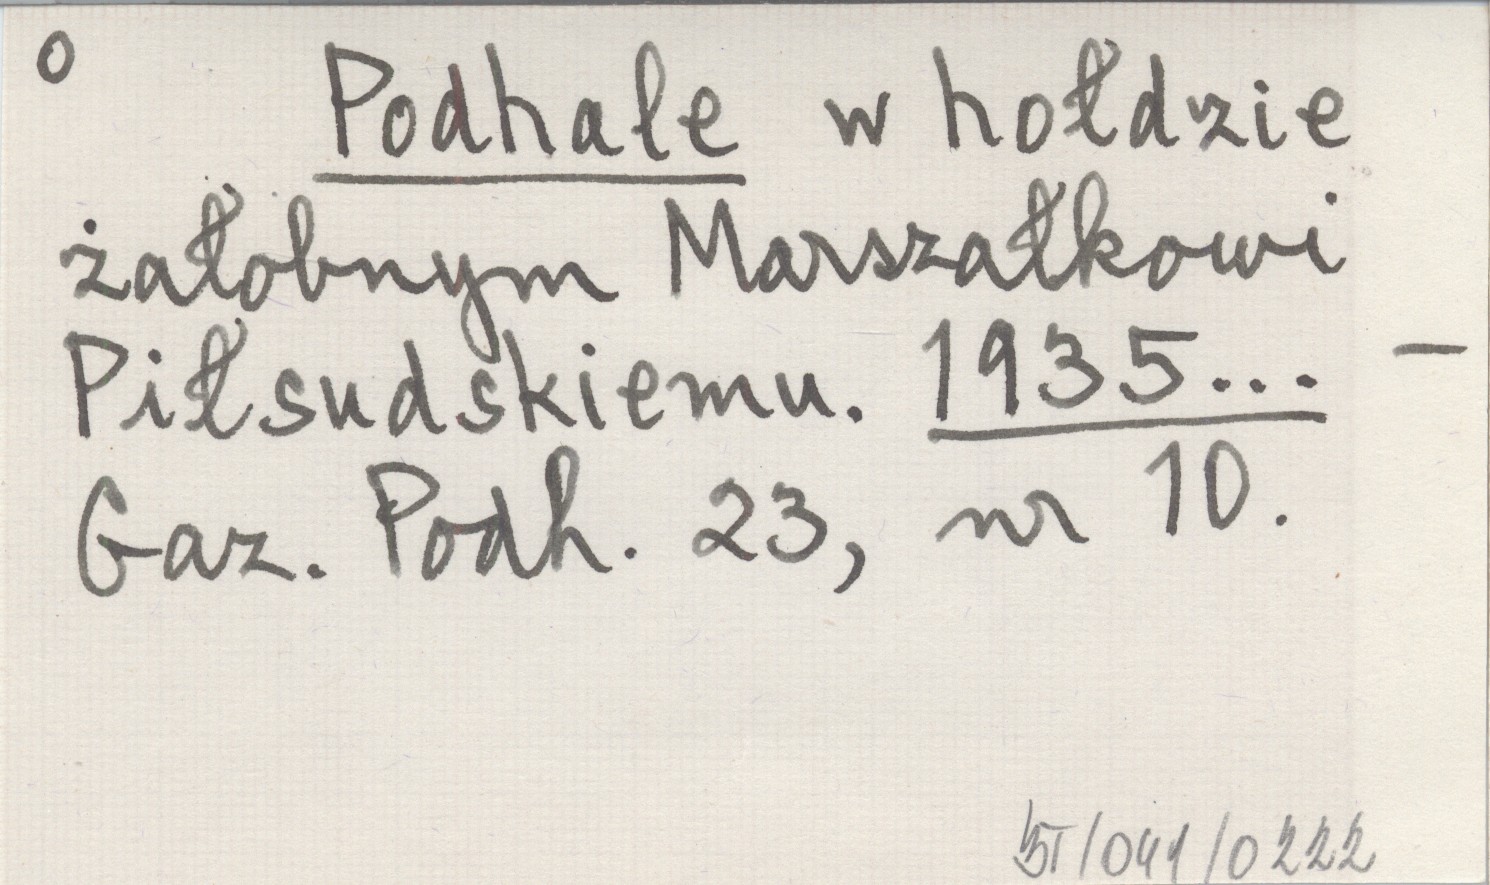 o Podhale w hołdzie
żałobnym Marszałkowi
Piłsudskiemu. 1935... –
Gaz. Podh. 23, nr 10.
/041/0222